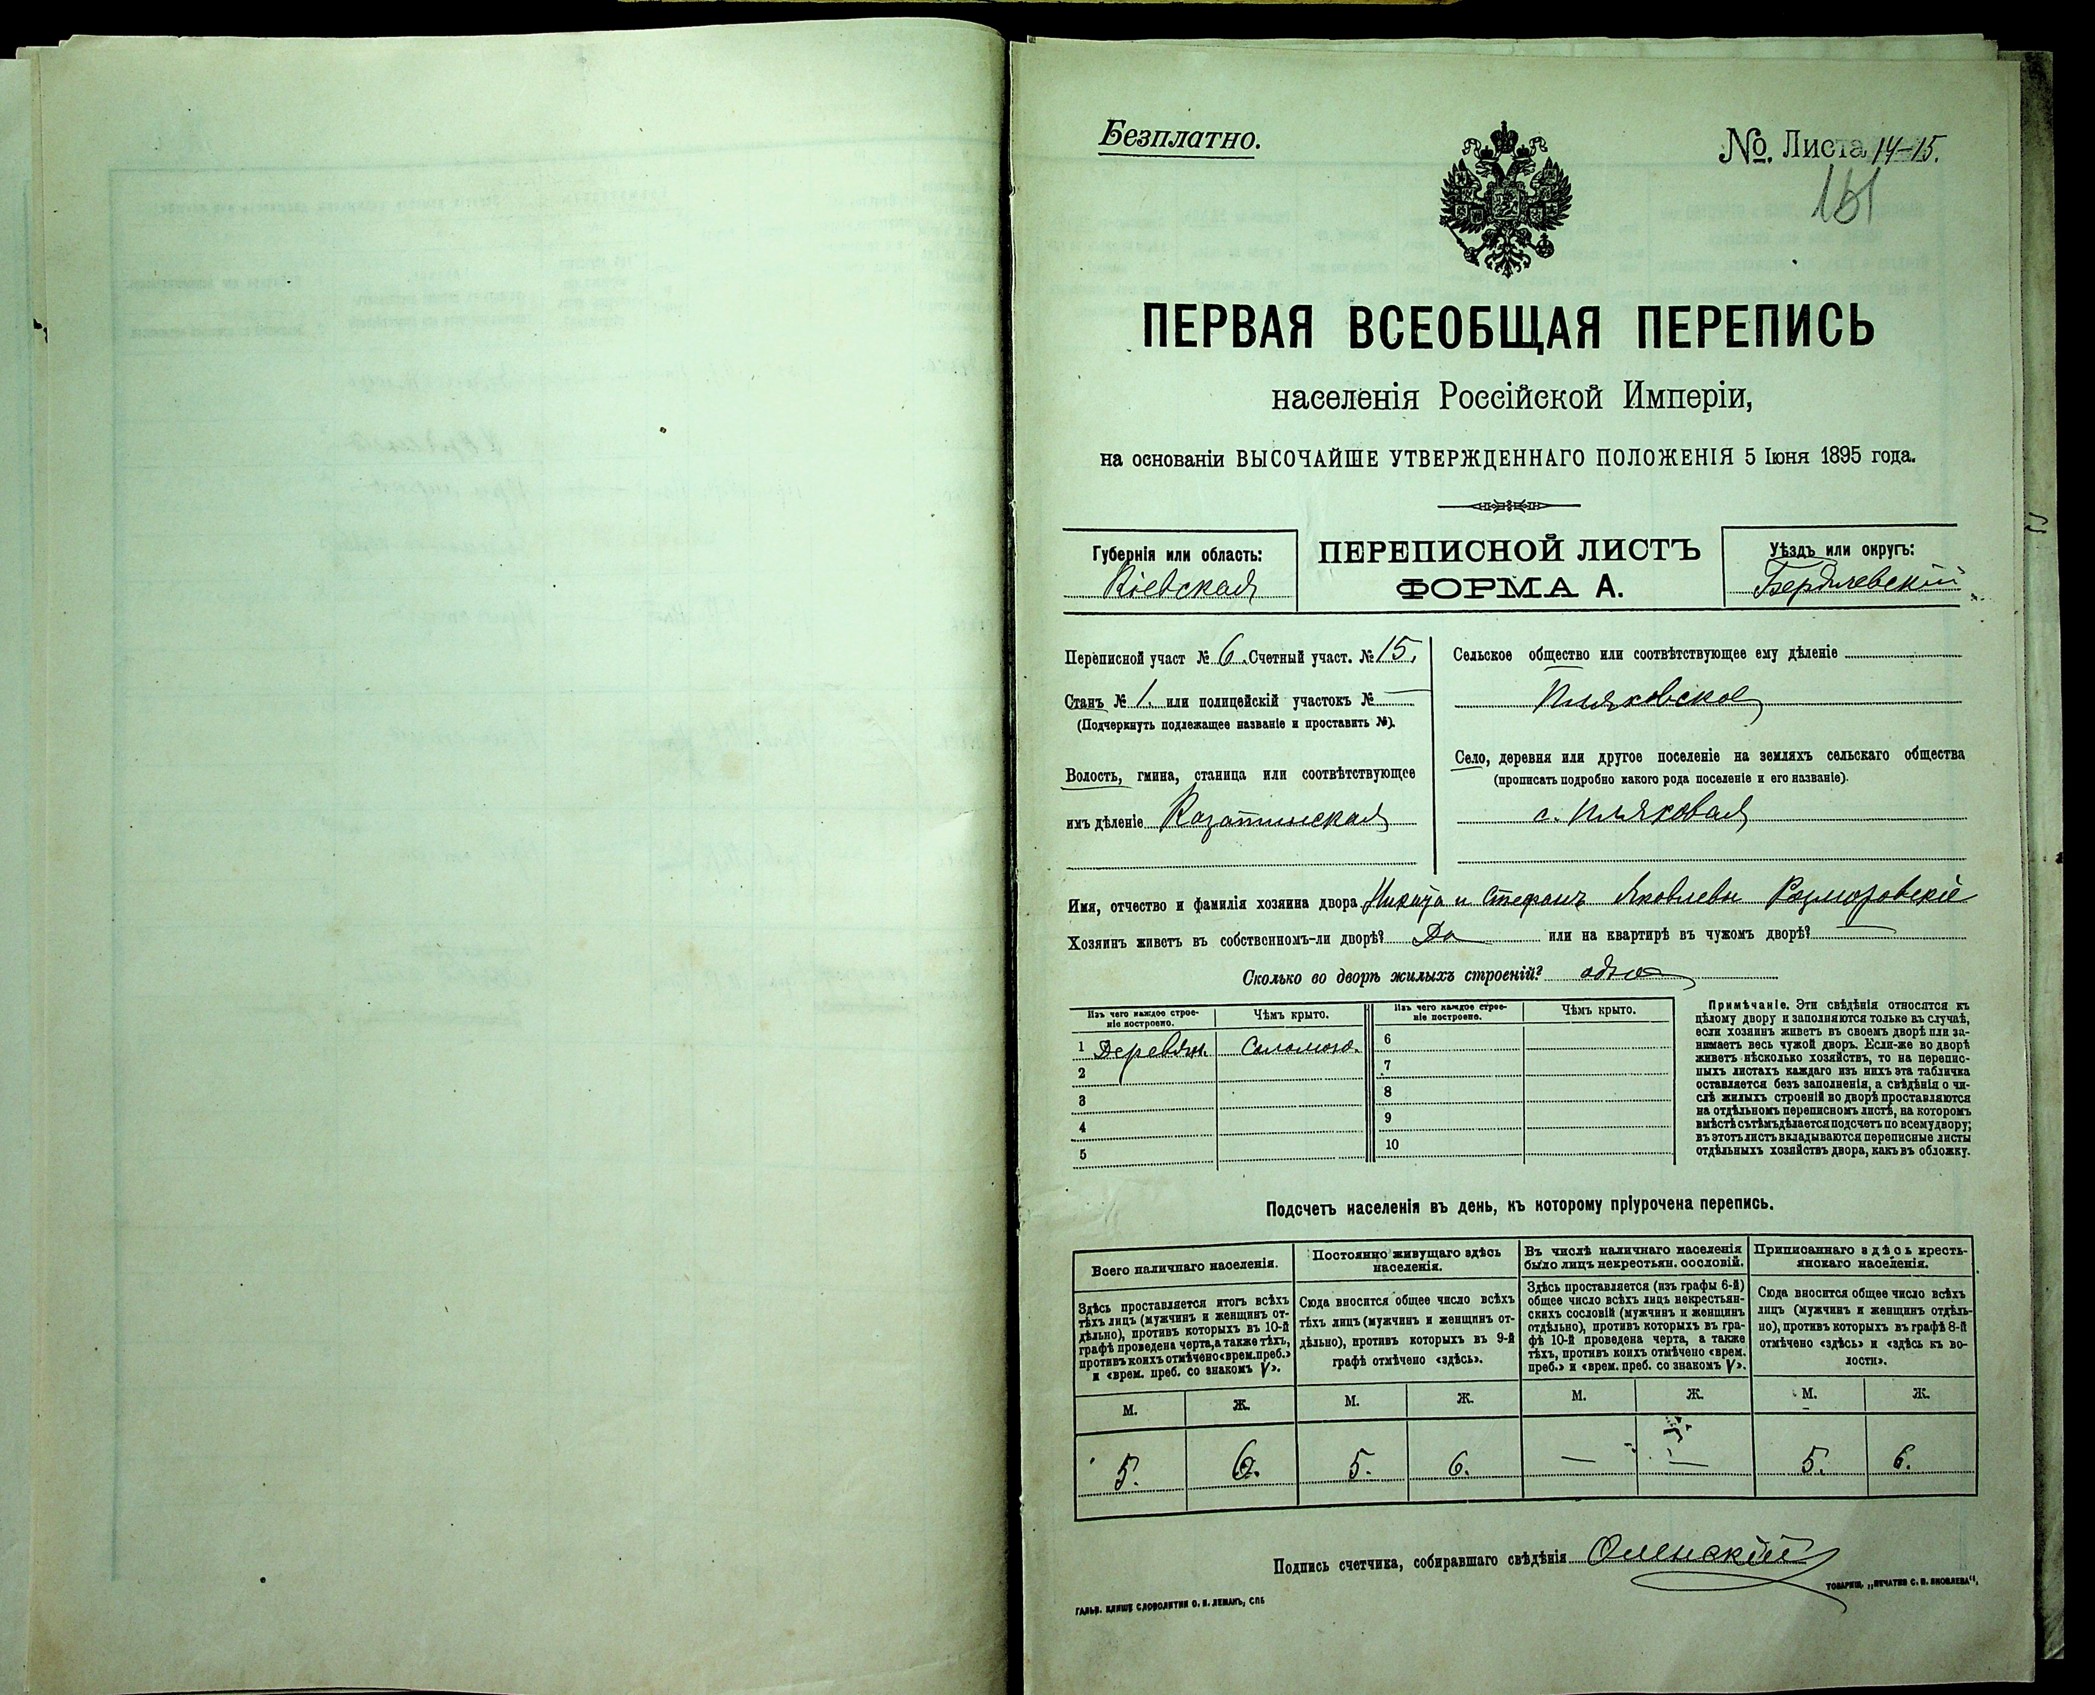 Безплатно.
№. Листа 14-15.
161
ПЕРВАЯ ВСЕОБЩАЯ ПЕРЕПИСЬ
населенія Россійской Имперіи,
на основаніи ВЫСОЧАЙШЕ УТВЕРЖДЕННАГО ПОЛОЖЕНІЯ 5 Іюня 1895 года.
Губернія или область:
Кіевская
ПЕРЕПИСНОЙ ЛИСТЪ
ФОРМА А.
Уѣздъ или округъ:
Бердичевскій
Переписной участ № 6. Счетный участ. № 15.
Станъ № 1. или полицейскій участокъ № —
(Подчеркнуть подлежащее названіе и проставить №).
Волость, гмина, станица или соотвѣтствующее
имъ дѣленіе Казатинская
Сельское общество или соотвѣтствующее ему дѣленіе
Пляховское
Село, деревня или другое поселеніе на земляхъ сельскаго общества
(прописать подробно какого рода поселеніе и его названіе).
с. Пляховая
Имя, отчество и фамилія хозяина двора Никита и Стефанъ Яковлевы
Хозяинъ живетъ въ собственномъ-ли дворѣ? Да или на квартирѣ въ чужомъ дворѣ? —
Сколько во дворѣ жилыхъ строеній? одно
Изъ чего каждое строе-
ніе построено.
Чѣмъ крыто.
Изъ чего каждое строе-
ніе построено.
Чѣмъ крыто.
1 Деревян. Соломою. 6
2 7
3 8
4 9
5 10
Примѣчаніе. Эти свѣдѣнія относятся къ
цѣлому двору и заполняются только въ случаѣ,
если хозяинъ живетъ въ своемъ дворѣ или за-
нимаетъ весь чужой дворъ. Если-же во дворѣ
живетъ нѣсколько хозяйствъ, то на перепис-
ныхъ листахъ каждаго изъ нихъ эта табличка
оставляется безъ заполненія, а свѣдѣнія о чи-
слѣ жилыхъ строеній во дворѣ проставляются
на отдѣльномъ переписномъ листѣ, на которомъ
вмѣстѣ съ тѣмъ дѣлается подсчетъ по всему двору;
въ этотъ листъ вкладываются переписные листы
отдѣльныхъ хозяйствъ двора, какъ въ обложку.
Подсчетъ населенія въ день, къ которому пріурочена перепись.
Всего наличнаго населенія.
Здѣсь проставляется итогъ всѣхъ
тѣхъ лицъ (мужчинъ и женщинъ от-
дѣльно), противъ которыхъ въ 10-й
графѣ проведена черта, а также тѣхъ,
противъ коихъ отмѣчено «врем. преб.»
и «врем. преб. со знакомъ V».
Постоянно живущаго здѣсь
населенія.
Сюда вносится общее число всѣхъ
тѣхъ лицъ (мужчинъ и женщинъ от-
дѣльно), противъ которыхъ въ 9-й
графѣ отмѣчено «здѣсь».
Въ числѣ наличнаго населенія
было лицъ некрестьян. сословій.
Здѣсь проставляется (изъ графы 6-й)
общее число всѣхъ лицъ некрестьян-
скихъ сословій (мужчинъ и женщинъ
отдѣльно), противъ которыхъ въ гра-
фѣ 10-й проведена черта, а также
тѣхъ, противъ коихъ отмѣчено «врем.
преб.» и «врем. преб. со знакомъ V».
Приписаннаго здѣсь кресть-
янскаго населенія.
Сюда вносится общее число всѣхъ
лицъ (мужчинъ и женщинъ отдѣль-
но), противъ которыхъ въ графѣ 8-й
отмѣчено «здѣсь» и «здѣсь къ во-
лости».
М. Ж. М. Ж. М. Ж. М. Ж.
5. 6. 5. 6. — — 5. 6.
Подпись счетчика, собиравшаго свѣдѣнія
ГАЛЬВ. КЛИШЕ СЛОВОЛИТНИ О. И. ЛЕМАНЪ, СПБ
ТОВАРИЩ. „ПЕЧАТНЯ С. П. ЯКОВЛЕВА“,